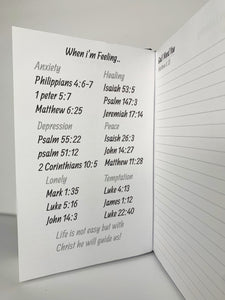 When i'm Feeling..
Anxiety
Philippians 4:6-7
1 peter 5:7
Matthew 6:25
Depression
Psalm 55:22
psalm 51:12
2 Corinthians 10:5
Lonely
Mark 1:35
Luke 5:16
John 14:3
Healing
Isaiah 53:5
Psalm 147:3
Jeremiah 17:14
Peace
Isaiah 26:3
John 14:27
Matthew 11:28
Temptation
Luke 4:13
James 1:12
Luke 22:40
Life is not easy but with
Christ he will guide us!